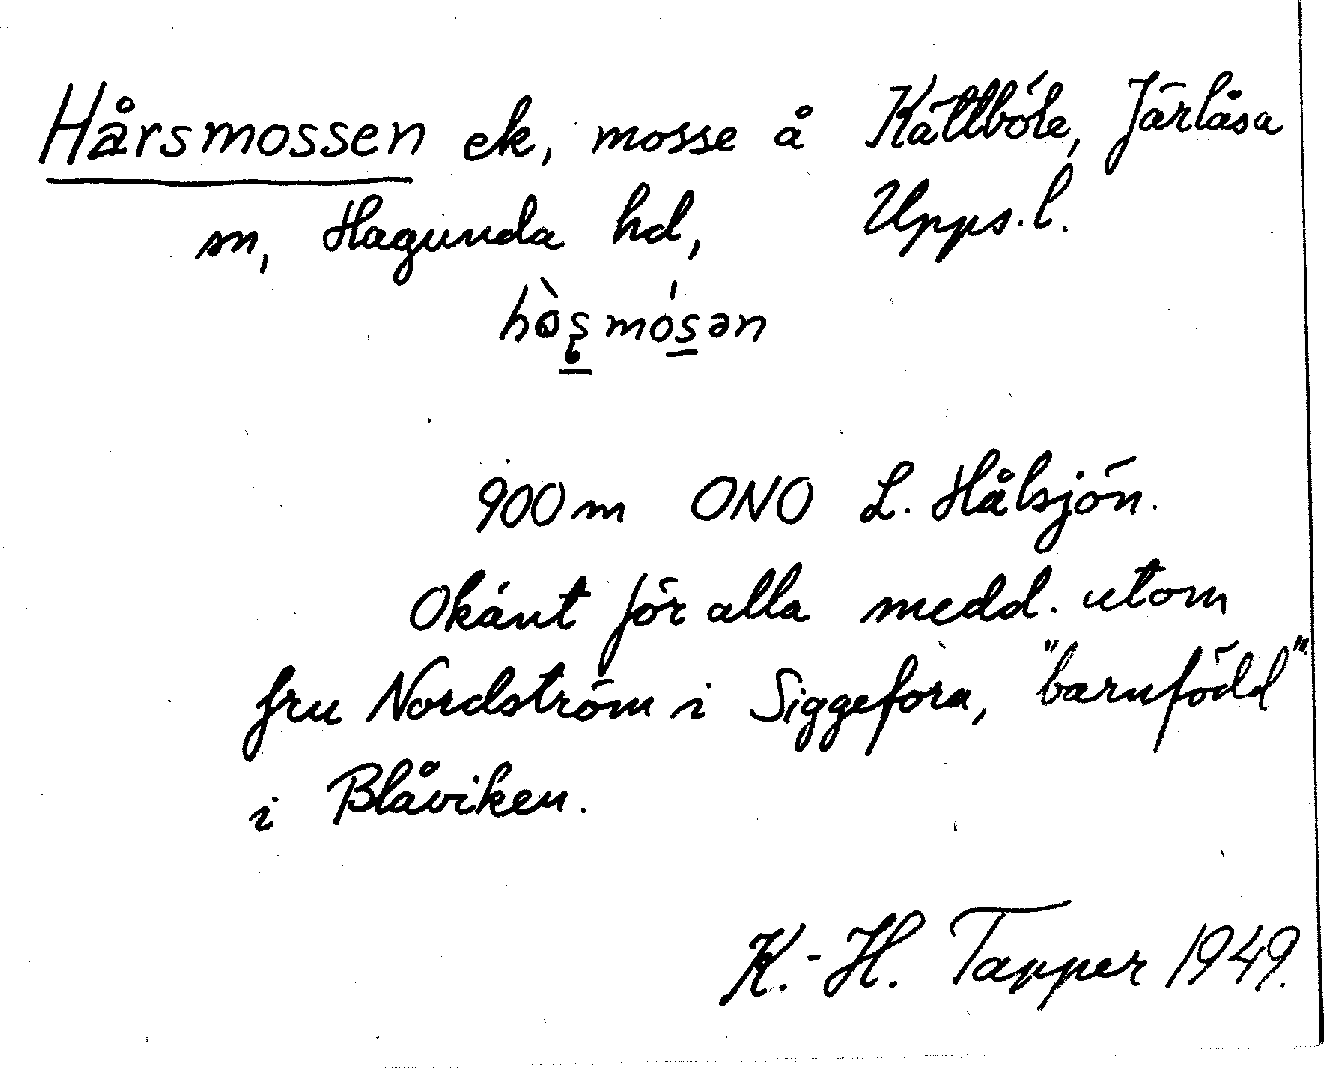 Hårsmossen ek, mosse å Kättböle, Järlåsa
sn, Hagunda hd, Upps. l.
hò̀ʂmósən
900 m ONO L. Hålsjön.
Okänt för alla medd. utom
fru Nordström i Siggefora, "barnfödd"
i Blåviken.
K.-H. Tapper 1949.